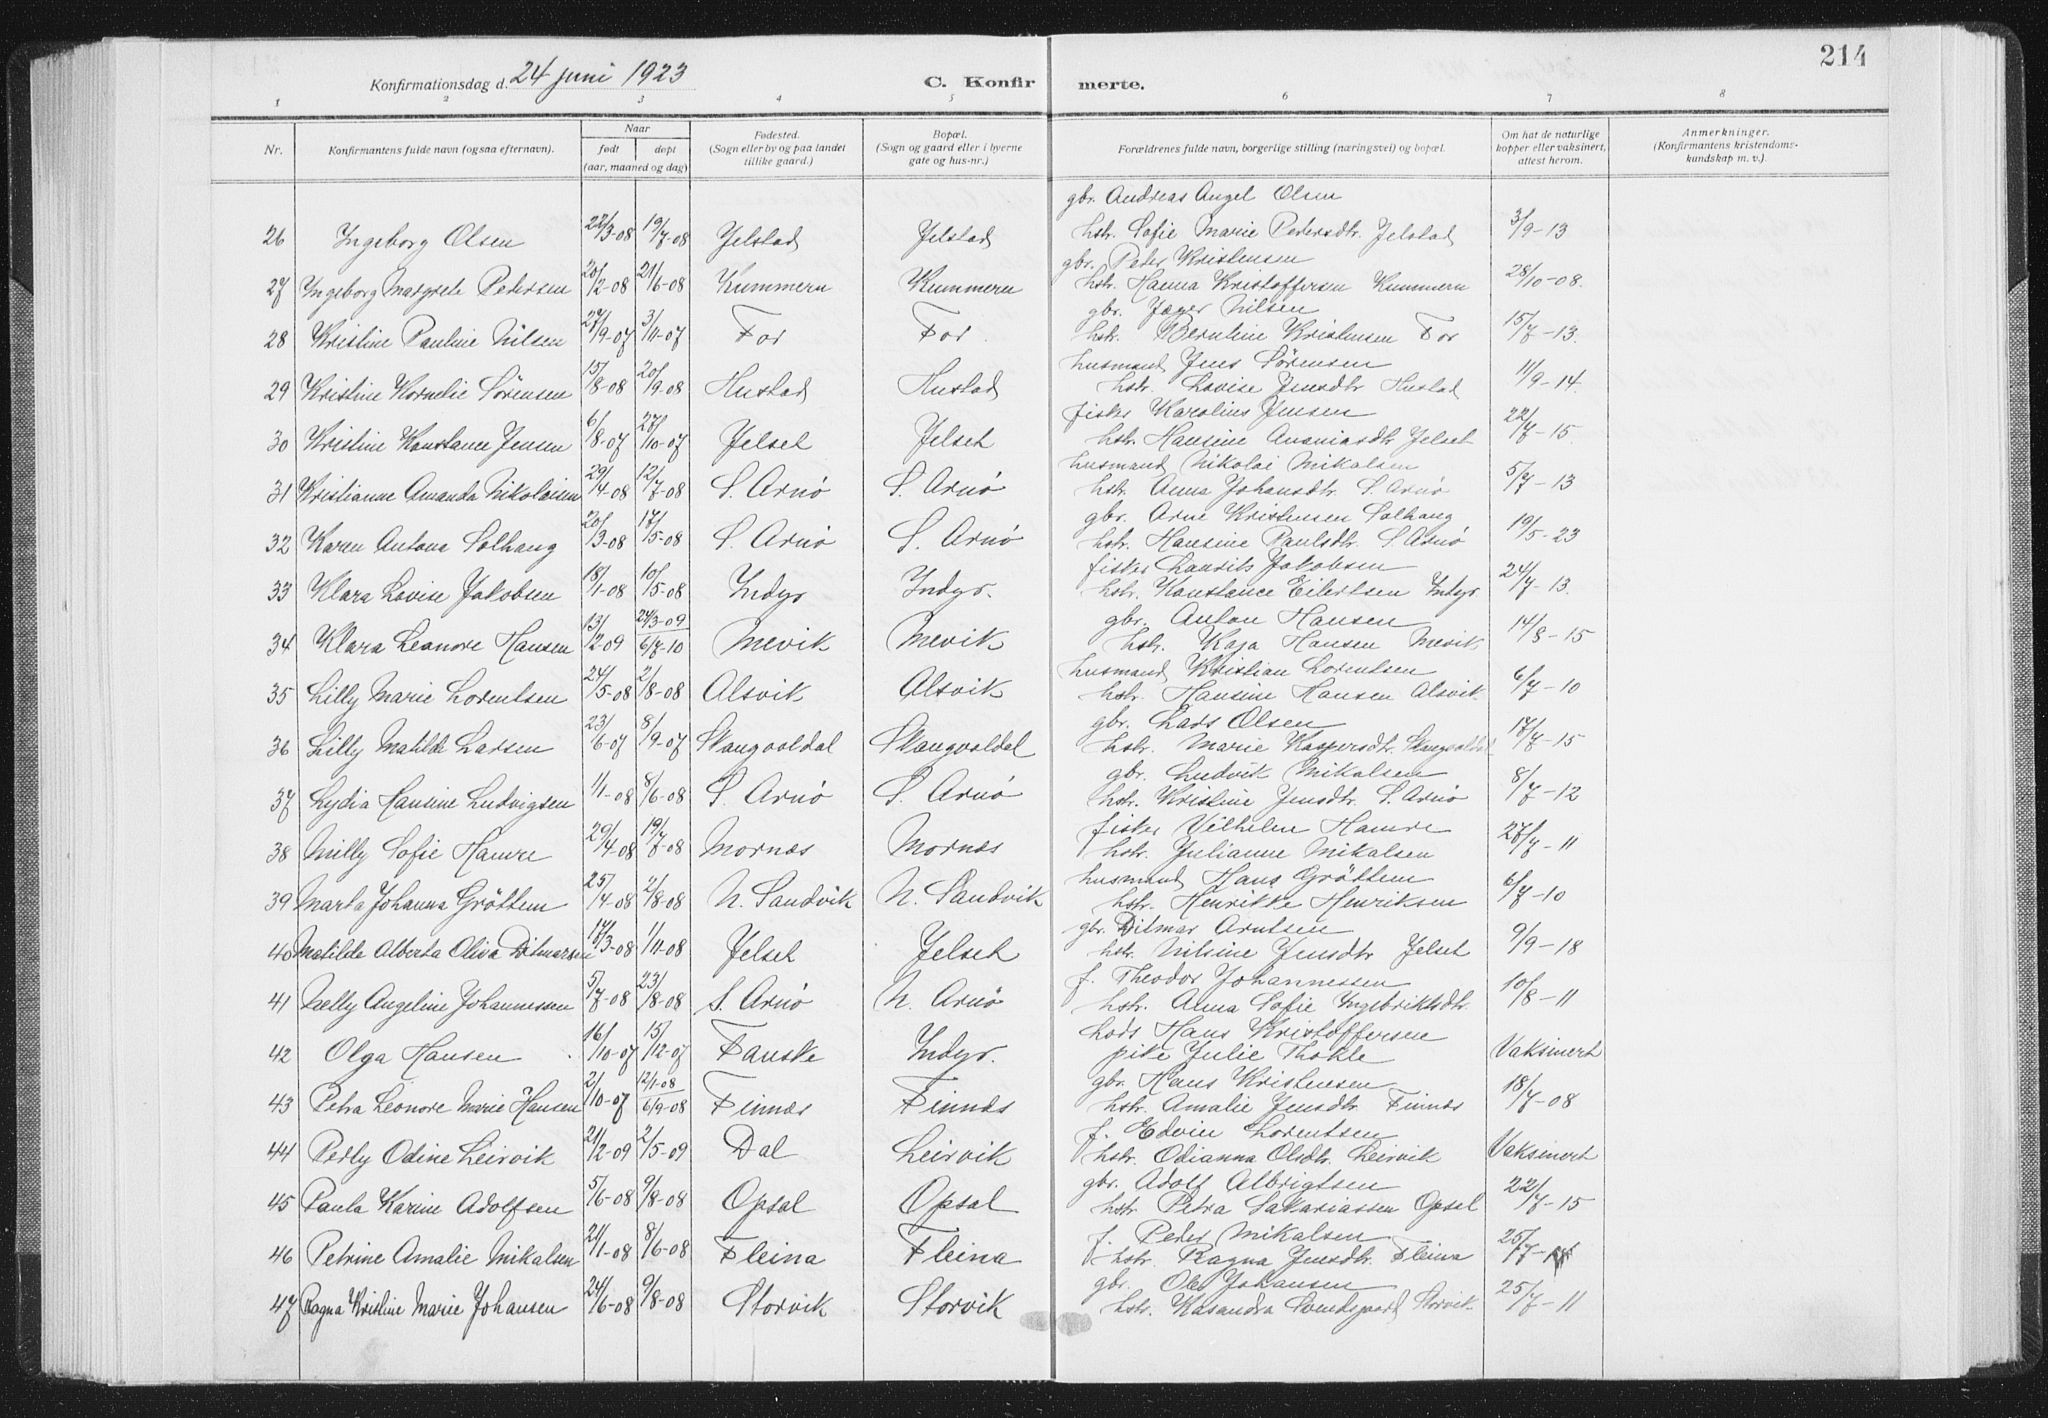 214
Konfirmationsdag d. 24 juni 1923 C. Konfirmerte.
1 2 3 4 5 6 7 8
Nr. Konfirmantens fulde navn (ogsaa efternavn). Naar født døpt (aar, maaned og dag) Fødested. (Sogn eller by og paa landet tillike gaard.) Bopæl. (Sogn og gaard eller i byerne gate og hus-nr.) Forældrenes fulde navn, borgerlige stilling (næringsvei) og bopæl. Om hat de naturlige kopper eller vaksinert, attest herom. Anmerkninger. (Konfirmantens kristendomskundskap m. v.)
gbr. Andreas Angel Olsen
26 Ingeborg Olsen 22/3-08 19/7-08 Jelstad Jelstad hstr. Sofie Marie Pedersdtr. Jelstad 3/9-13
gbr. Peder Kristensen
27 Ingeborg Margrete Pedersen 20/12-08 21/6-08 Kummern Kummern hstr. Hanna Kristoffersen Kummern 28/10-08.
gbr. Jæger Nilsen
28 Kristine Pauline Nilsen 27/9-07 3/11-07 For For hstr. Berntine Kristensen For 15/7-13.
husmand Jens Sørensen
29 Kristine Kornelie Sørensen 15/8-08 20/9-08 Hustad Hustad hstr. Lovise Jensdtr. Hustad 11/9-14.
fisker Karolius Jensen
30 Kristine Konstance Jensen 6/8-07 27/10-07 Jelset Jelset hstr. Hansine Ananiasdtr Jelset 22/7-15.
husmand Nikolai Mikalsen
31 Kristianne Amanda Nikolaisen 29/4-08 12/7-08 S. Arnö S. Arnö hstr. Anna Johansdtr. S. Arnö 5/7-13
gbr. Arne Kristensen Solhaug
32 Karen Antona Solhaug 20/3-08 17/5-08 S. Arnö S. Arnö hstr. Hansine Paulsdtr. S. Arnö 19/5-23
fisker Laurits Jakobsen
33 Klara Lovise Jakobsen 18/1-08 10/5-08 Indyr Indyr. hstr. Konstance Eilertsen Indyr 24/7-13.
gbr. Anton Hansen
34 Klara Leonore Hansen 13/2-09 24/3-09 6/7-10 Mevik Mevik hstr. Kaja Hansen Mevik 14/8-15
husmand Kristian Lorentsen
35 Lilly Marie Lorentsen 24/5-08 2/8-08 Alsvik Alsvik hstr. Hansine Hansen Alsvik. 6/7-10
gbr. Lars Olsen
36 Lilly Matilde Larsen 23/6-07 8/9-07 Skaugvoldal Skaugvoldal hstr. Marie Kaspersdtr. Skaugvoldal 17/7-15
gbr. Ludvik Mikalsen
37 Lydia Hansine Ludvigsen 1/1-08 8/6-08 S. Arnö S. Arnö hstr. Kristine Jensdtr. S. Arnö 8/7-12
fisker Vilhelm Hamre
38 Milly Sofie Hamre 29/4-08 19/7-08 Mornes Mornes hstr. Julianne Mikalsen 27/7-11
husmand Hans Gröttem
39 Marta Johanna Gröttem 25/4-08 2/8-08 N. Sandvik N. Sandvik hstr. Henrikke Henriksen 6/7-10
gbr. Ditmar Arntsen
40 Matilde Alberta Oliva Ditmarsen 17/3-08 1/11-08 Jelset Jelset hstr. Nilsine Jensdtr Jelset 9/9-18
f. Theodor Johannessen
41 Nelly Angeline Johannessen 5/7-08 23/8-08 S. Arnö N. Arnö hstr. Anna Sofie Ingebriktsdtr. 10/8-11
Lods Hans Kristoffersen
42 Olga Hansen 16/10-07 15/12-07 Fauske Indyr. pike Julie Thohle Vaksinert
gbr. Hans Kristensen
43 Petra Leonore Marie Hansen 2/10-07 12/1-08 6/9-08 Finnes Finnes hstr. Amalie Jensdtr. Finnes 18/7-08
f. Edvin Lorentsen
44 Perly Odine Leirvik 21/2-09 2/5-09 Dal Leirvik hstr. Odianna Olsdtr. Leirvik Vaksinert
gbr. Adolf Albrigtsen
45 Paula Karine Adolfsen 5/6-08 9/8-08 Opsal Opsal hstr Petra Sakariassen Opsal 22/7-15
f. Peder Mikalsen
46 Petrine Amalie Mikalsen 21/1-08 8/6-08 Fleina Fleina hstr. Ragna Jensdtr. Fleina 25/7-
gbr. Ole Johansen
47 Ragna Kristine Marie Johansen 24/6-08 9/8-08 Storvik Storvik hstr. Kasandra Svendsgaard Storvik 25/7-11